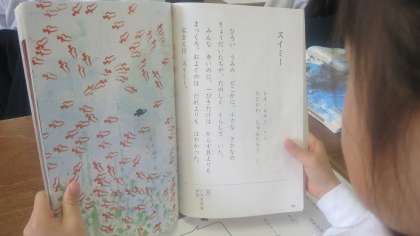 スイミー
ひろい うみの どこかに、小さな さかなの
きょうだいたちが、たのしく くらして いた。
みんな 赤いのに、一ぴきだけは からす貝よりも
まっくろ。およぐのは だれよりも はやかった。
名まえは スイミー。